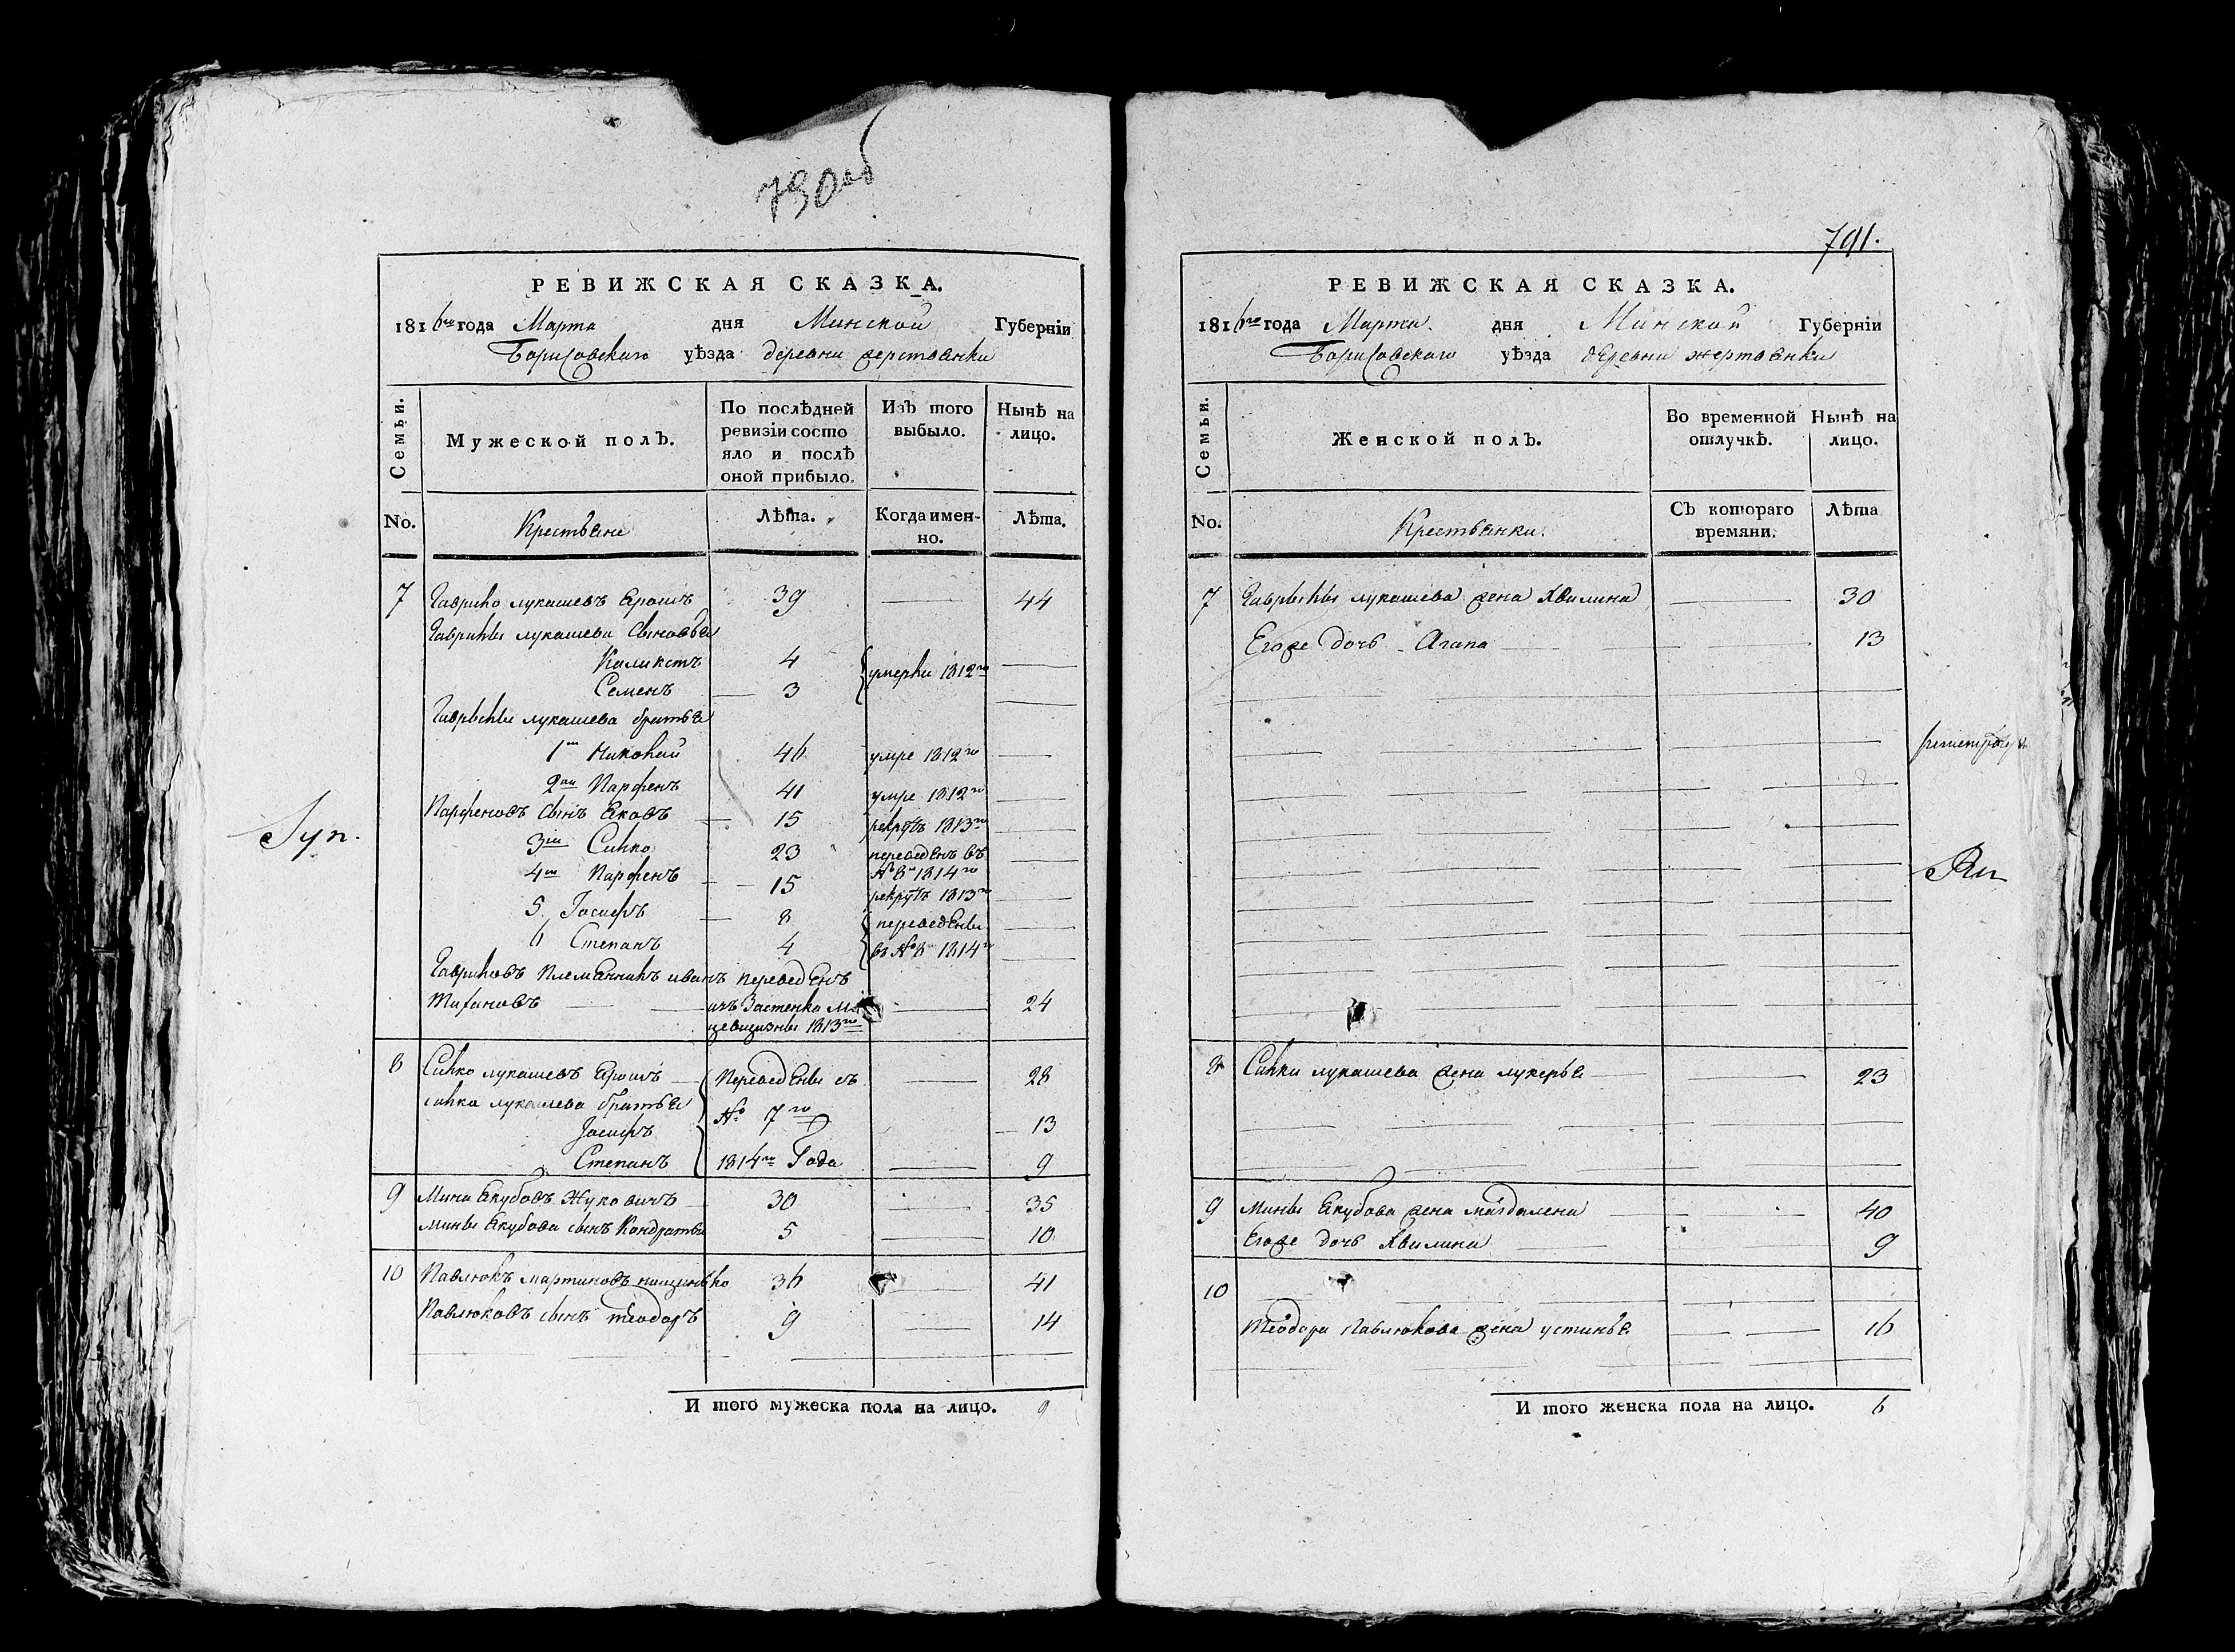 790об
РЕВИЖСКАЯ СКАЗКА.
1816го года Марта дня Минской Губерніи
Борисовского уѣзда деревни жертвянки
Семьи.
Мужеской полъ.
По послѣдней ревизіи состояло и послѣ оной прибыло.
Изъ того выбыло.
Нынѣ на лицо.
No.
Крестьяне
Лѣта.
Когда именно.
Лѣта.
7 Гаврило лукашевъ Ярошъ 39 44
Гаврилы лукашева сыновья
Каликстъ 4 умерли 1812го
Семенъ 3
Гаврылы лукашева братья
1й Николай 46 умре 1812го
2ой Парфенъ 41 умре 1812го
Парфеновъ сынъ Яковъ 15 рекрутъ 1813го
3ій Силко 23 переведенъ въ № 8й 1814го
4й Парфенъ 15 рекрутъ 1813го
5. Іосифъ 8 переведены
6 Степанъ 4 въ № 8й 1814го
Гавриловъ племянникъ иванъ переведенъ
изъ Застенка 24
1813го
8 Силко лукашевъ Ярошъ Переведены съ 28
силка лукашева братья № 7го
Іосифъ 13
Степанъ 1814го Года 9
9 Мина Якубовъ Жуковичъ 30 35
Мины Якубова сынъ Кондратъ 5 10
10 Павлюкъ мартиновъ 36 41
Павлюковъ сынъ теодоръ 9 14
И того мужеска пола на лицо. 9
791.
РЕВИЖСКАЯ СКАЗКА.
1816го года Марта дня Минской Губерніи
Борисовского уѣзда деревни жертвянки
Семьи.
Женской полъ.
Во временной отлучкѣ.
Нынѣ на лицо.
No.
Крестьянки.
Съ котораго времяни.
Лѣта
7 Гаврылы лукашева жена Хвилина 30
Егоже дочь Агапа 13
8 Силки лукашева жена лукерья 23
9 Мины Якубова жена магдалена 40
Егоже дочь Хвилина 9
10
Теодора Павлюкова жена устинья 16
И того женска пола на лицо. 6